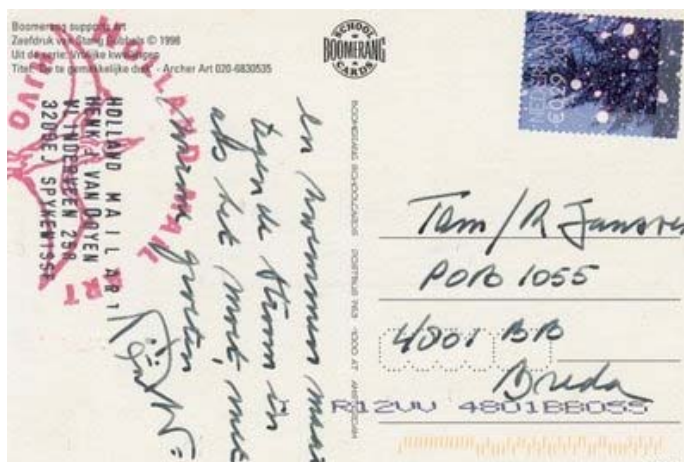 Boomerang supports Art
Zeefdruk van Stang Gubbels © 1998
Uit de serie: Vrolijke kwellingen
Titel: De te gemakkelijke dief - Archer Art 020-6830535
SCHOOL
BOOMERANG
CARDS
NEDERLAND
€0,29
HOLLAND MAIL ART
HOLLAND MAIL ART
HENK J VAN OOYEN
VLINDERVEEN 258
3205EJ SPYKENISSE
en zwemmen maar
tegen de stroom in
als het moet, met
warme groeten
BOOMERANG SCHOOLCARDS POSTBUS 763 1000 AT AMSTERDAM
Tam / R Janssen
POB 1055
4801 BB
Breda
R12VV 4801BB055